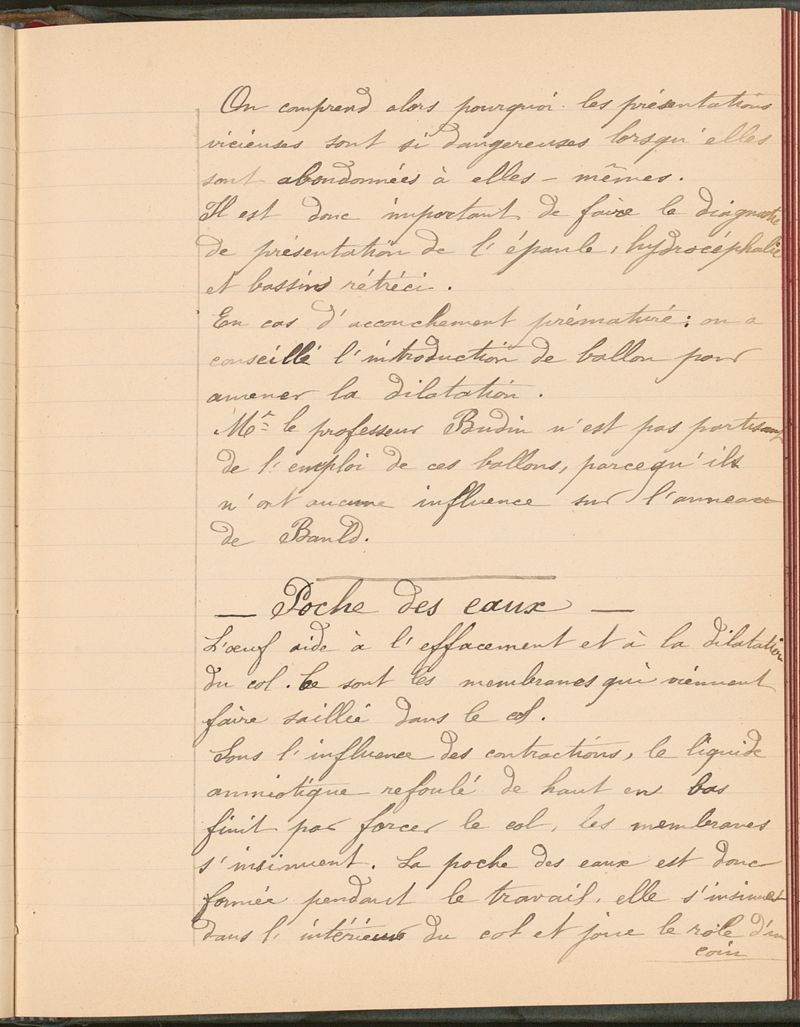 On comprend alors pourquoi les présentations
vicieuses sont si dangereuses lorsqu'elles
sont abondonnées à elles - mêmes.
Il est donc important de faire le diagnostic
de présentation de l'épaule, hydrocéphalie
et bassins rétréci.
En cas d'accouchement prématuré : on a
conseillé l'introduction de ballon pour
amener la dilatation.
Mr le professeur Budin n'est pas partisan
de l'emploi de ces ballons, parcequ'ils
n'ont aucune influence sur l'anneau
de Bandl.
— Poche des eaux —
L'œuf aide à l'effacement et à la dilatation
du col. Ce sont les membranes qui viennent
faire saillie dans le col.
Sous l'influence des contractions, le liquide
amniotique refoulé de haut en bas
finit par forcer le col, les membranes
s'insinuent. La poche des eaux est donc
formée pendant le travail, elle s'insinue
dans l'intérieur du col et joue le rôle d'un
coin